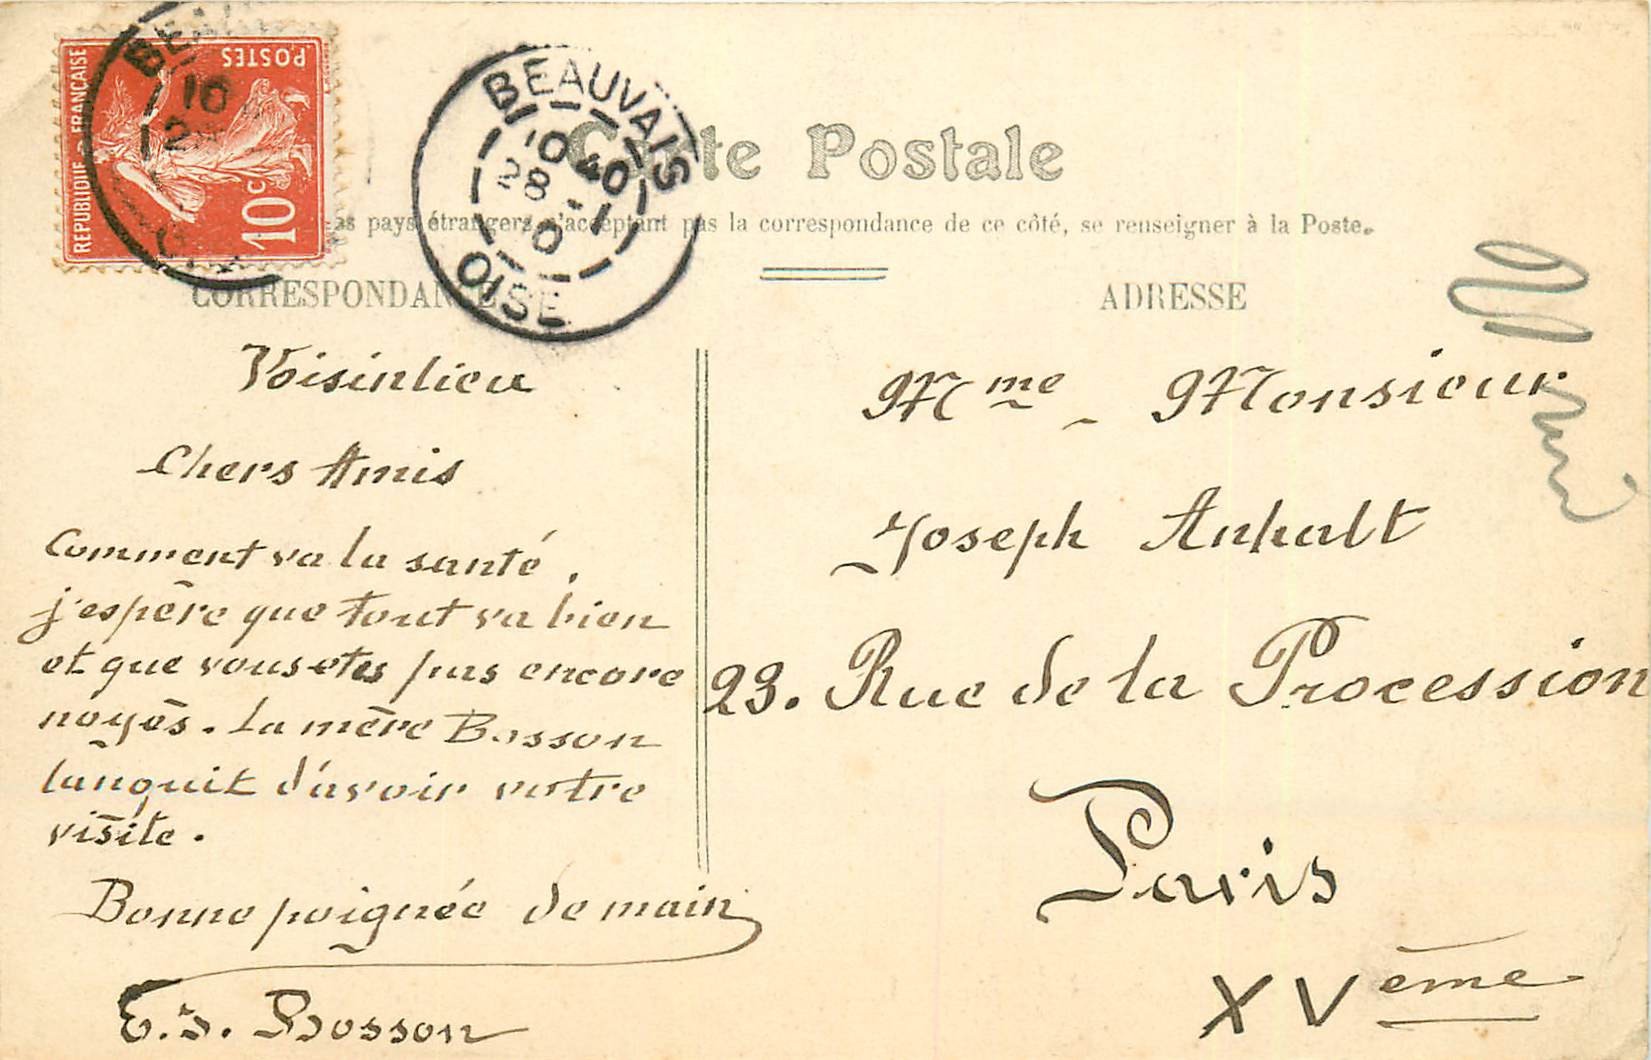 POSTES
RÉPUBLIQUE FRANÇAISE
10c
BEAUVAIS
10 40
28
10
OISE
Carte Postale
pays étrangers n'acceptant pas la correspondance de ce côté, se renseigner à la Poste.
CORRESPONDANCE
ADRESSE
Voisinlieu
Chers Amis
Comment va la santé.
j'espère que tout va bien
et que vous etes pas encore
noyés. La mère Bosson
languit d'avoir votre
visite.
Bonne poignée de main
E. J. Bosson
Mme - Monsieur
Joseph Anhalt
23. Rue de la Procession
Paris
XVème